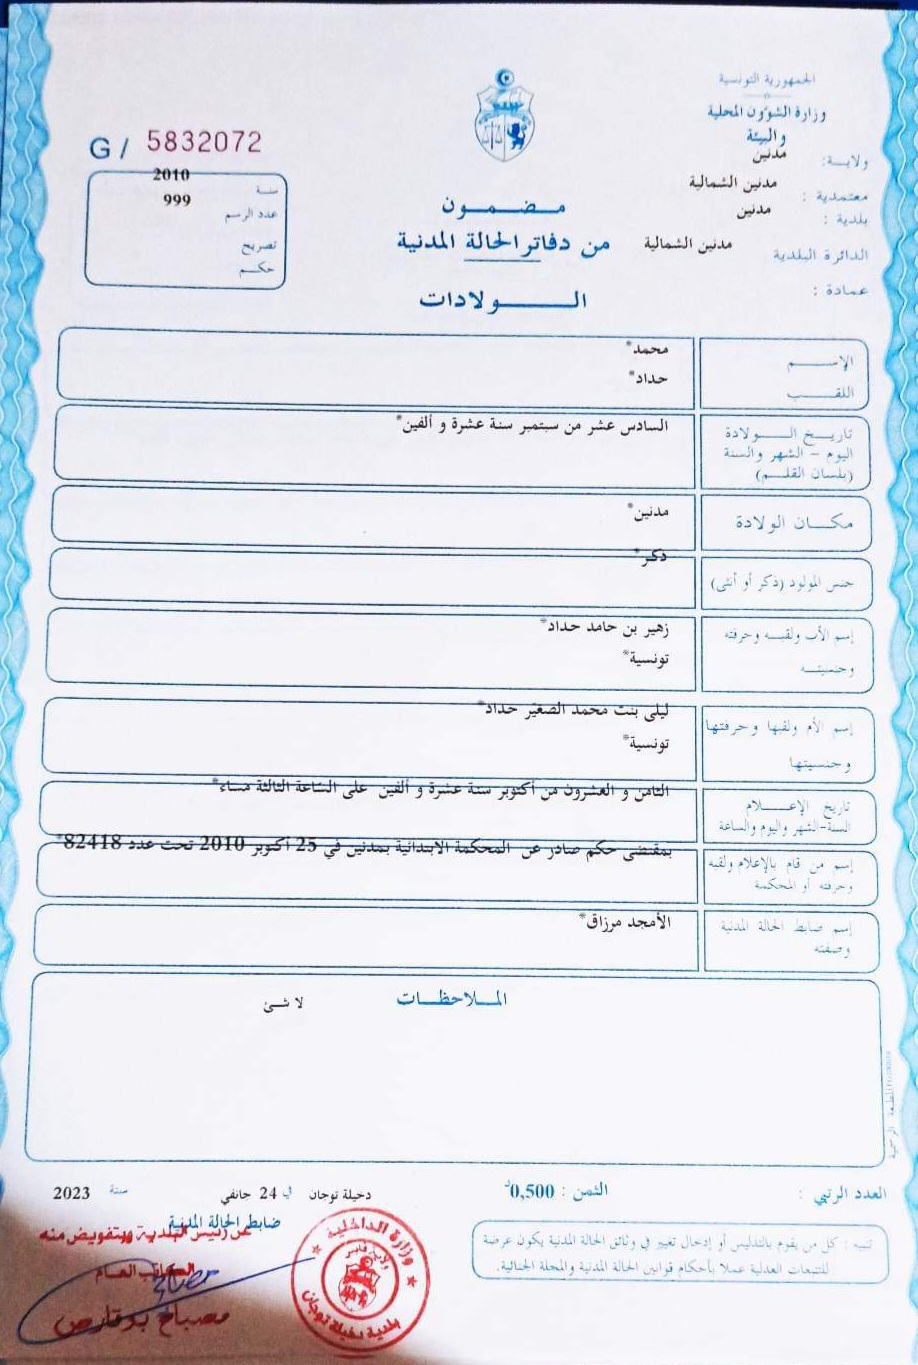 الجمهورية التونسية
وزارة الشؤون المحلية
والبيئة
ولاية: مدنين
معتمدية : مدنين الشمالية
بلدية : مدنين
الدائرة البلدية مدنين الشمالية
عمادة :
G / 5832072
سنة 2010
عدد الرسم 999
تصريح
حكم
مضمون
من دفاتر الحالة المدنية
الولادات
الإسم محمد*
اللقب حداد*
تاريخ الولادة السادس عشر من سبتمبر سنة عشرة و ألفين*
اليوم - الشهر والسنة
(بلسان القلم)
مكان الولادة مدنين*
جنس المولود (ذكر أو أنثى) ذكر*
إسم الأب ولقبه وحرفته زهير بن حامد حداد*
وجنسيته تونسية*
إسم الأم ولقبها وحرفتها ليلى بنت محمد الصغيّر حداد*
وجنسيتها تونسية*
تاريخ الإعلام الثامن و العشرون من أكتوبر سنة عشرة و ألفين على الساعة الثالثة مساء*
السنة-الشهر واليوم والساعة
إسم من قام بالإعلام ولقبه بمقتضى حكم صادر عن المحكمة الابتدائية بمدنين في 25 أكتوبر 2010 تحت عدد 82418*
وحرفته أو المحكمة
إسم ضابط الحالة المدنية الأمجد مرزاق*
وصفته
الملاحظات
لا شئ
المطبعة الرسمية
العدد الرتبي :
الثمن : 0,500د
دخيلة توجان في 24 جانفي سنة 2023
ضابط الحالة المدنية
عن رئيس البلدية وبتفويض منه
الكاتب العام
مصباح
مصباح بوقارص
وزارة الداخلية
ولاية قابس
بلدية دخيلة توجان
تنبيه : كل من يقوم بالتدليس أو إدخال تغيير في وثائق الحالة المدنية يكون عرضة
للتتبعات العدلية عملا بأحكام قوانين الحالة المدنية والمجلة الجنائية.